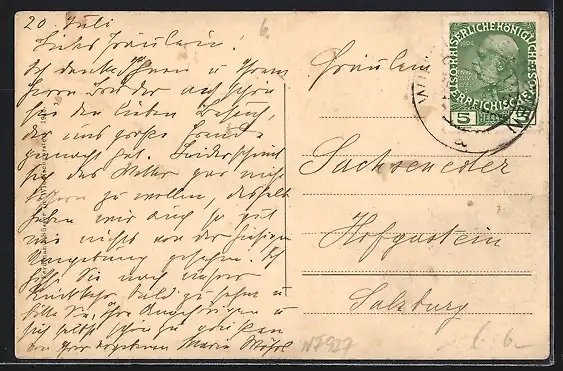 20. Juli
Liebes Fräulein!
Ich danke Ihnen u Ihrem
Herrn Bruder auf
für den lieben Besuch,
der uns große Freude
gemacht hat. Leider scheint
sich das Wetter gar nicht
bessern zu wollen, deshalb
haben wir auch so gut
wie nichts von der hiesigen
Umgebung gesehen. Ich
hoffe Sie nach unserer
Rückkehr bald zu sehen u
bitte Sie, Ihre Angehörigen u
sich selbst schön zu grüßen
von Ihrer ergebenen Maria
6.
Fräulein
Sachseneder
Hofgastein
Salzburg
N7927
6.-
KAISERLICHE KÖNIGLICHE ÖSTERREICHISCHE
5 HELLER 5